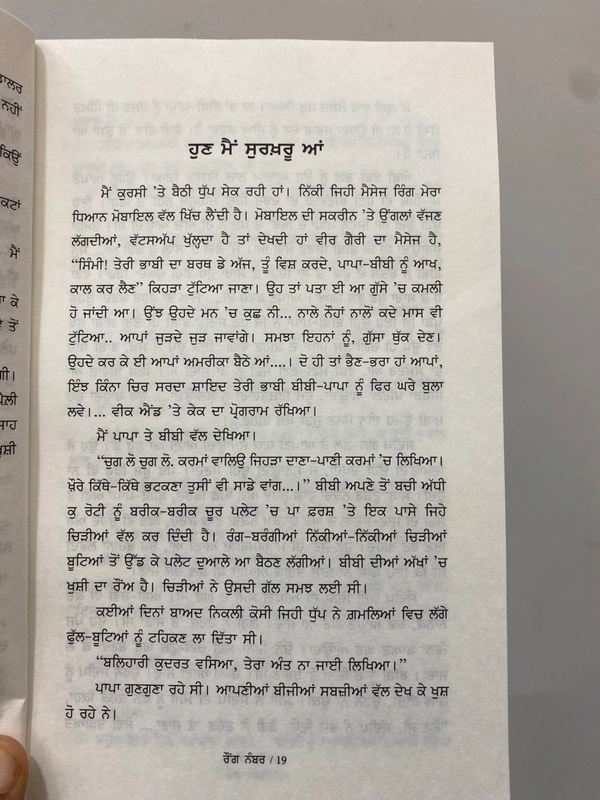 ਾਲਰ
ਨਹੀਂ
ਕਿਉਂ
ਕਟਾਂ
ਮੈਂ
ਾ ਕੇ
ੇ ਤੋਂ
ਗੀ।
ਜਾਹ
ਖ਼ੁਸ਼ੀ
ਹੁਣ ਮੈਂ ਸੁਰਖ਼ਰੂ ਆਂ
ਮੈਂ ਕੁਰਸੀ ’ਤੇ ਬੈਠੀ ਧੁੱਪ ਸੇਕ ਰਹੀ ਹਾਂ। ਨਿੱਕੀ ਜਿਹੀ ਮੈਸੇਜ ਰਿੰਗ ਮੇਰਾ
ਧਿਆਨ ਮੋਬਾਇਲ ਵੱਲ ਖਿੱਚ ਲੈਂਦੀ ਹੈ। ਮੋਬਾਇਲ ਦੀ ਸਕਰੀਨ ’ਤੇ ਉਂਗਲਾਂ ਵੱਜਣ
ਲੱਗਦੀਆਂ, ਵੱਟਸਅੱਪ ਖੁੱਲ੍ਹਦਾ ਹੈ ਤਾਂ ਦੇਖਦੀ ਹਾਂ ਵੀਰ ਗੈਰੀ ਦਾ ਮੈਸੇਜ ਹੈ,
“ਸਿੰਮੀ! ਤੇਰੀ ਭਾਬੀ ਦਾ ਬਰਥ ਡੇ ਅੱਜ, ਤੂੰ ਵਿਸ਼ ਕਰਦੇ, ਪਾਪਾ-ਬੀਬੀ ਨੂੰ ਆਖ,
ਕਾਲ ਕਰ ਲੈਣ” ਕਿਹੜਾ ਟੁੱਟਿਆ ਜਾਣਾ। ਉਹ ਤਾਂ ਪਤਾ ਈ ਆ ਗੁੱਸੇ ’ਚ ਕਮਲੀ
ਹੋ ਜਾਂਦੀ ਆ। ਉਂਝ ਉਹਦੇ ਮਨ ’ਚ ਕੁਛ ਨੀ... ਨਾਲੇ ਨੌਹਾਂ ਨਾਲੋਂ ਕਦੇ ਮਾਸ ਵੀ
ਟੁੱਟਿਆ.. ਆਪਾਂ ਜੁੜਦੇ ਜੁੜ ਜਾਵਾਂਗੇ। ਸਮਝਾ ਇਹਨਾਂ ਨੂੰ, ਗੁੱਸਾ ਥੁੱਕ ਦੇਣ।
ਉਹਦੇ ਕਰ ਕੇ ਈ ਆਪਾਂ ਅਮਰੀਕਾ ਬੈਠੇ ਆਂ....। ਦੋ ਹੀ ਤਾਂ ਭੈਣ-ਭਰਾ ਹਾਂ ਆਪਾਂ,
ਇੰਝ ਕਿੰਨਾ ਚਿਰ ਸਰਦਾ ਸ਼ਾਇਦ ਤੇਰੀ ਭਾਬੀ ਬੀਬੀ-ਪਾਪਾ ਨੂੰ ਫਿਰ ਘਰੇ ਬੁਲਾ
ਲਵੇ।... ਵੀਕ ਐਂਡ ’ਤੇ ਕੇਕ ਦਾ ਪ੍ਰੋਗਰਾਮ ਰੱਖਿਆ।
ਮੈਂ ਪਾਪਾ ਤੇ ਬੀਬੀ ਵੱਲ ਦੇਖਿਆ।
“ਚੁਗ ਲੋ ਚੁਗ ਲੋ. ਕਰਮਾਂ ਵਾਲਿਉ ਜਿਹੜਾ ਦਾਣਾ-ਪਾਣੀ ਕਰਮਾਂ ’ਚ ਲਿਖਿਆ।
ਖ਼ੌਰੇ ਕਿੱਥੇ-ਕਿੱਥੇ ਭਟਕਣਾ ਤੁਸੀਂ ਵੀ ਸਾਡੇ ਵਾਂਗ...।” ਬੀਬੀ ਅਪਣੇ ਤੋਂ ਬਚੀ ਅੱਧੀ
ਕੁ ਰੋਟੀ ਨੂੰ ਬਰੀਕ-ਬਰੀਕ ਚੂਰ ਪਲੇਟ ’ਚ ਪਾ ਫ਼ਰਸ਼ ’ਤੇ ਇਕ ਪਾਸੇ ਜਿਹੇ
ਚਿੜੀਆਂ ਵੱਲ ਕਰ ਦਿੰਦੀ ਹੈ। ਰੰਗ-ਬਰੰਗੀਆਂ ਨਿੱਕੀਆਂ-ਨਿੱਕੀਆਂ ਚਿੜੀਆਂ
ਬੂਟਿਆਂ ਤੋਂ ਉੱਡ ਕੇ ਪਲੇਟ ਦੁਆਲੇ ਆ ਬੈਠਣ ਲੱਗੀਆਂ। ਬੀਬੀ ਦੀਆਂ ਅੱਖਾਂ ’ਚ
ਖੁਸ਼ੀ ਦਾ ਰੌਂਅ ਹੈ। ਚਿੜੀਆਂ ਨੇ ਉਸਦੀ ਗੱਲ ਸਮਝ ਲਈ ਸੀ।
ਕਈਆਂ ਦਿਨਾਂ ਬਾਅਦ ਨਿਕਲੀ ਕੋਸੀ ਜਿਹੀ ਧੁੱਪ ਨੇ ਗ਼ਮਲਿਆਂ ਵਿਚ ਲੱਗੇ
ਫੁੱਲ-ਬੂਟਿਆਂ ਨੂੰ ਟਹਿਕਣ ਲਾ ਦਿੱਤਾ ਸੀ।
“ਬਲਿਹਾਰੀ ਕੁਦਰਤ ਵਸਿਆ, ਤੇਰਾ ਅੰਤ ਨਾ ਜਾਈ ਲਿਖਿਆ।”
ਪਾਪਾ ਗੁਣਗੁਣਾ ਰਹੇ ਸੀ। ਆਪਣੀਆਂ ਬੀਜੀਆਂ ਸਬਜ਼ੀਆਂ ਵੱਲ ਦੇਖ ਕੇ ਖੁਸ਼
ਹੋ ਰਹੇ ਨੇ।
ਰੌਂਗ ਨੰਬਰ / 19